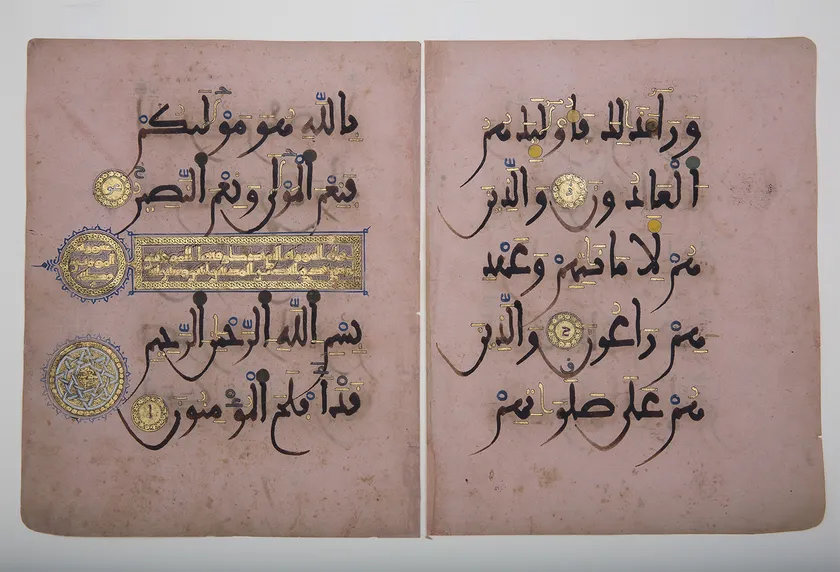 وراء ذلك فأوليك هم
العادون والذين
هم لأمانتهم وعهد
هم راعون والذين
هم على صلواتهم
بالله هو موليكم
فنعم المولى ونعم النصير
بسم الله الرحمن الرحيم
قد أفلح المؤمنون